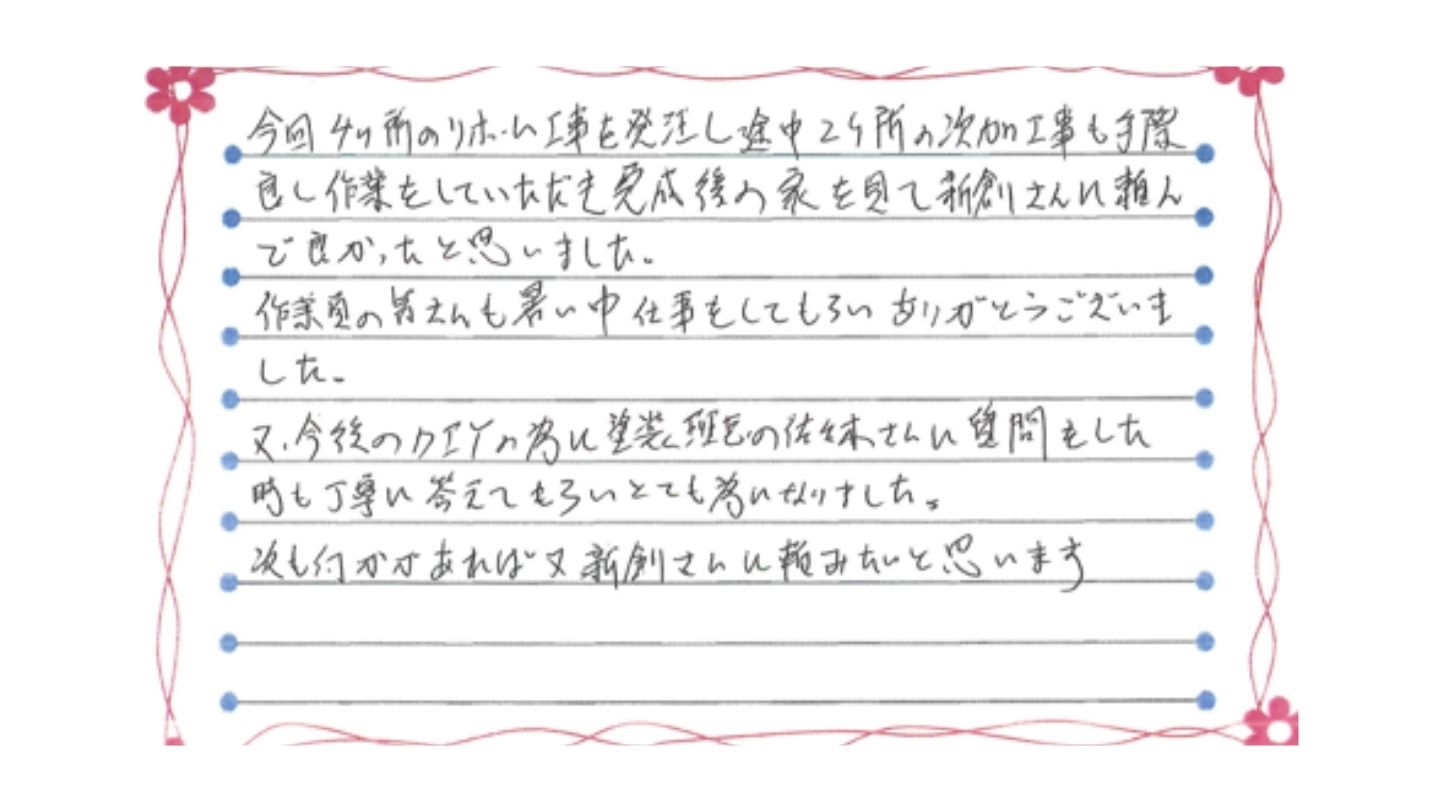 今回4ケ所のリホーム工事を発注し途中2ケ所の追加工事も手際
良し作業をしていただき完成後の家を見て新創さんに頼ん
で良かったと思いました。
作業員の皆さんも暑い中仕事をしてもらいありがとうございま
した。
又、今後のDIYの為に塗装の佐々木さんに質問をした
時も丁寧に答えてもらいとても為になりました。
次も何かがあれば又新創さんに頼みたいと思います